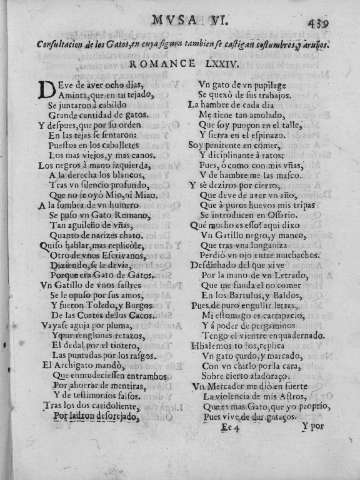 MVSA VI.
439
Consultacion de los Gatos, en cuya figura tambien se castigan costumbres, y aruños.
ROMANCE LXXIV.
DEve de aver ocho dias,
Aminta, que en tu tejado,
Se juntaron a cabildo
Grande cantidad de gatos.
Y despues, que por su orden
En las tejas se sentaron:
Puestos en los caballetes
Los mas viejos, y mas canos.
Los negros à mano izquierda,
A la derecha los blancos,
Tras vn silencio profundo,
Que no se oyò Mio, ni Miao.
A la sombra de vn humero
Se puso vn Gato Romano,
Tan aguileño de vñas,
Quanto de narizes chato.
Quiso hablar, mas replicòle,
Otro de vnos Escrivanos,
Diziendo, se le devia,
Porque era Gato de Gatos.
Vn Gatillo de vnos sastres
Se le opuso por sus amos,
Y fueron Toledo, y Burgos
De las Cortes de los Cacos.
Vaya se aguja por pluma,
Y por renglones retazos,
El dedal por el tintero,
Las puntadas por los rasgos.
El Archigato mandò,
Que enmudeciessen entrambos
Por ahorrar de mentiras,
Y de testimonios falsos.
Tras los dos caridoliente,
Por ladron desorejado,
Vn gato de vn pupilage
Se quexò de sus trabajos.
La hambre de cada dia
Me tiene tan amolado,
Que soy punçon en el talle,
Y sierra en el espinazo.
Soy penitente en comer,
Y diciplinante à ratos;
Pues, ò como con mis vñas,
V de hambre me las masco.
Y sè deziros por cierro,
Que deve de aver vn año,
Que à puros huevos mis tripas
Se introducen en Ossario.
Que mucho es esso? aqui dixo
Vn Gatillo negro, y manco,
Que tras vna longaniza
Perdiò vn ojo entre muchachos.
Desdichado del que vive
Por la mano de vn Letrado,
Que me funda el no comer
En los Bartulos, y Baldos,
Pues de puro engullir letras,
Mi estomago es cartapacio,
Y à poder de pergaminos
Tengo el vientre enquadernado.
Hablemos todos, replica
Vn gato gurdo, y marcado,
Con vn chirlo por la cara,
Sobre cierto assadoraço.
Vn Mercader me diò en suerte
La violencia de mis Astros,
Que es mas Gato, que yo proprio,
Pues vive de dar gataços.
Ee 4
Y por